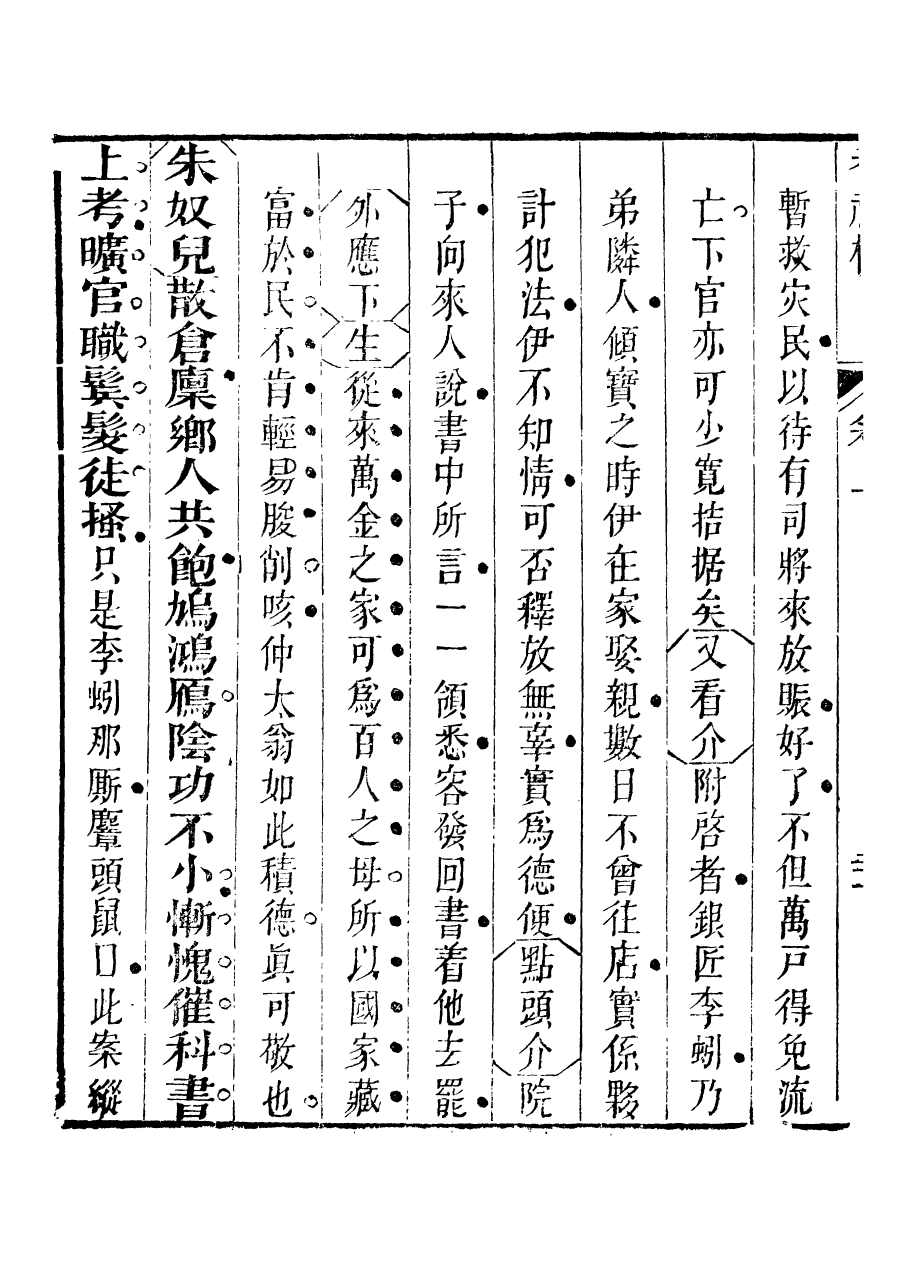 暫救灾民以待有司將來放賑好了不但萬戸得免流
亡下官亦可少寛拮据矣又看介附啓者銀匠李蚓乃
弟隣人傾寶之時伊在家娶親數日不曾往店實係夥
計犯法伊不知情可否釋放無辜實爲德便點頭介院
子向來人說書中所言一一領悉容發回書着他去罷
外應下生從來萬金之家可爲百人之母所以國家藏
富於民不肯輕易朘削咳仲太翁如此積德眞可敬也
朱奴兒散倉廩鄉人共飽鳩鴻鴈陰功不小慚愧催科書
上考曠官職鬂髮徒搔只是李蚓那厮麞頭鼠口此案縱